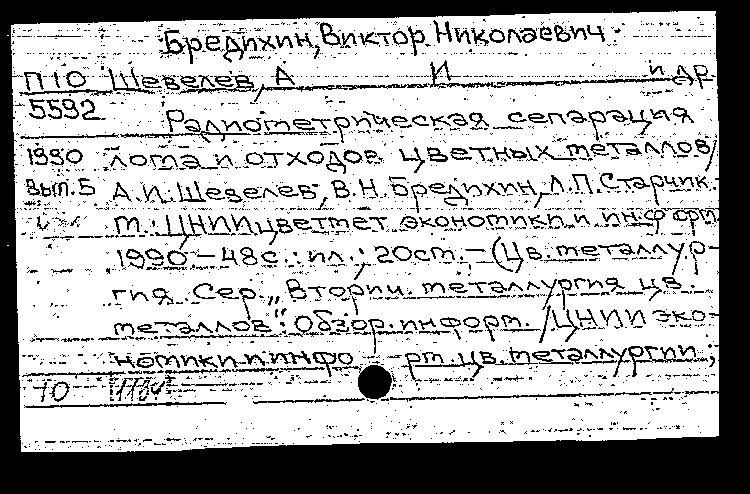 Бредихин, Виктор Николаевич
П10 Шевелев, А И и др
5592 Радиометрическая сепарация
1990 лома и отходов цветных металлов/
Вып.5 А.И.Шевелев, В.Н.Бредихин, Л.П.Старчик.-
М.: ЦНИИцветмет экономики и информ.
1990.-48с.: ил.; 20см.-(Цв.металлур-
гия. Сер. „Вторич. металлургия цв.
металлов": Обзор. информ. /ЦНИИ эко-
номики и инфо рм. цв. металлургии;
10